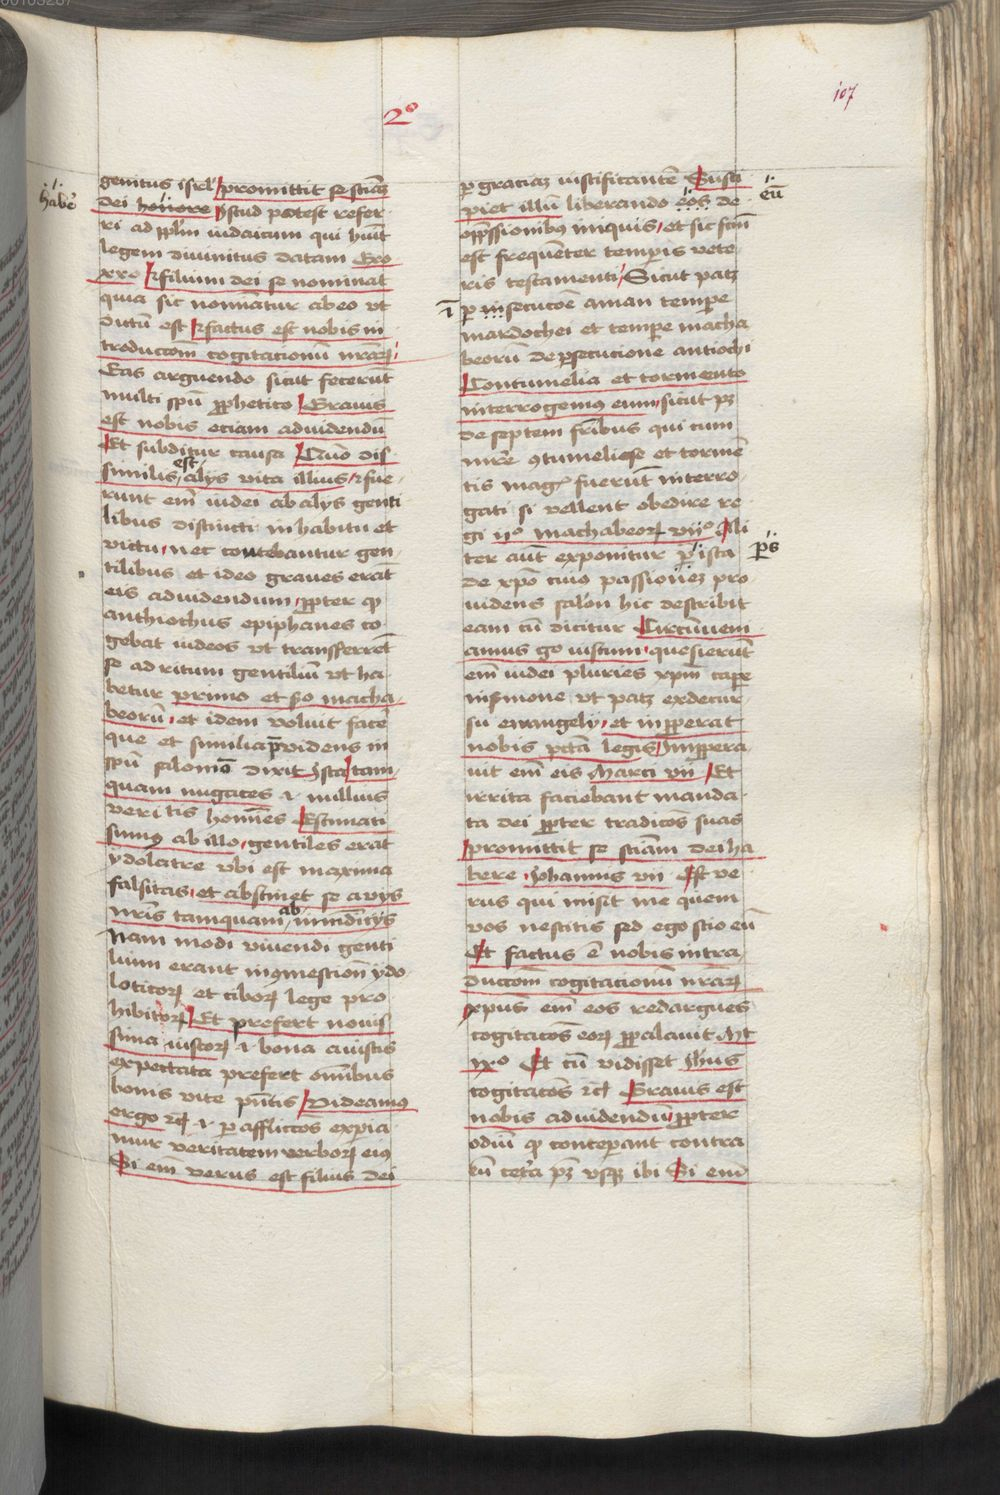 00103287
107
2º
genitus isrl' promittit se sciāz
habe'
dei honore Istud potest refer
ri ad pplm iudaicum qui hūt
legem diuinitus datam Exo
xxº Et filium dei se nominat
quia sic nomīatur ab eo vt
dictū est Et factus est nobis in
troductōm cogitacionū nrāꝝ
Eas arguendo sicut fecerūt
multi spū pphetico Grauis
est nobis eciam ad videndū
Et subditur causa Quō dis
similis est alijs vita illius Et fue
runt em̄ iudei ab alijs genti
libus distincti in habitu et
victu nec coutebantur gen
tilibus et ideo graues erāt
eis ad videndum ppter qꝫ
anthiochus epiphanes co
gebat iudeos vt transferrēt
se ad ritum gentiliū vt ha
betur primo et sºo macha
beorū et idem voluit facē
que et similia p̄videns in
spū salomō dixit Ista tam
quam nugaces et nullius
veri tis homīes Estimati
sumꝰ ab illo gentiles erāt
ydolatre vbi est maxima
falsitas et abstinet se a vijs
nrīs tamquam ab inmūdicijs
Nam modi viuendi genti
lium erant inquestionȳ ydo
loticoꝝ et ciboꝝ lege pro
hibitoꝝ Et prefert nouis
sima iustoꝝ et bona a iustis
expectata prefert omībus
bonis vite pn̄tis Videamꝰ
ergo rc̄ et p afflictōs experia
mur veritatem verboꝝ eiꝰ
Si em̄ verus est filius dei
p graciaꝫ iustificantē Susci
piet illū liberando eos de
eū
opp̄ssionibꝰ iniquis et sic fcm̄
est frequēter temp̄is vete
ris testamenti Sicut patꝫ
ī
p insecucōe aman tempe
mardochei et tempe macha
beorū de psecucione antiochi
Contumelia et tormento
interrogemꝰ eum sicut pꝫ
de septem frībus qui cum
mr̄e ꝯtumeliose et tormē
tis magꝭ fuerūt interro
gati si vellent obedire re
gi ijº machabeoꝝ vijº Ali
ter aūt exponitur p̄ ista
p̄s
de xpo cuiꝰ passioneꝫ pro
uidens salōn hic describit
eam cū dicitur Circūuem
amus gº iustum quesierūt
em̄ iudei pluries xpm̄ cape
in sermone vt patꝫ ex decur
su ewangelij et inpperat
nobis pctā legis Inppera
uit em̄ eis Marci vij Et
irrita faciebant manda
ta dei ppter tradicōs suas
promittit se sciām dei ha
bere Iohannis vij Est ve
rus qui misit me quem
vos nescitis sed ego scio eū
Et factus ē nobis in tra
ductōm cogitacionū nrāꝝ
xpus em̄ eos redargues
cogitacōs eoꝝ ppalauit Mt
ixº Et cū vidisset ihūs
cogitacōs rc̄ Grauis est
nobis ad videndū ppter
odiū qꝫ conceperant contra
eū cetā pꝫ vsqꝫ ibi Si em̄